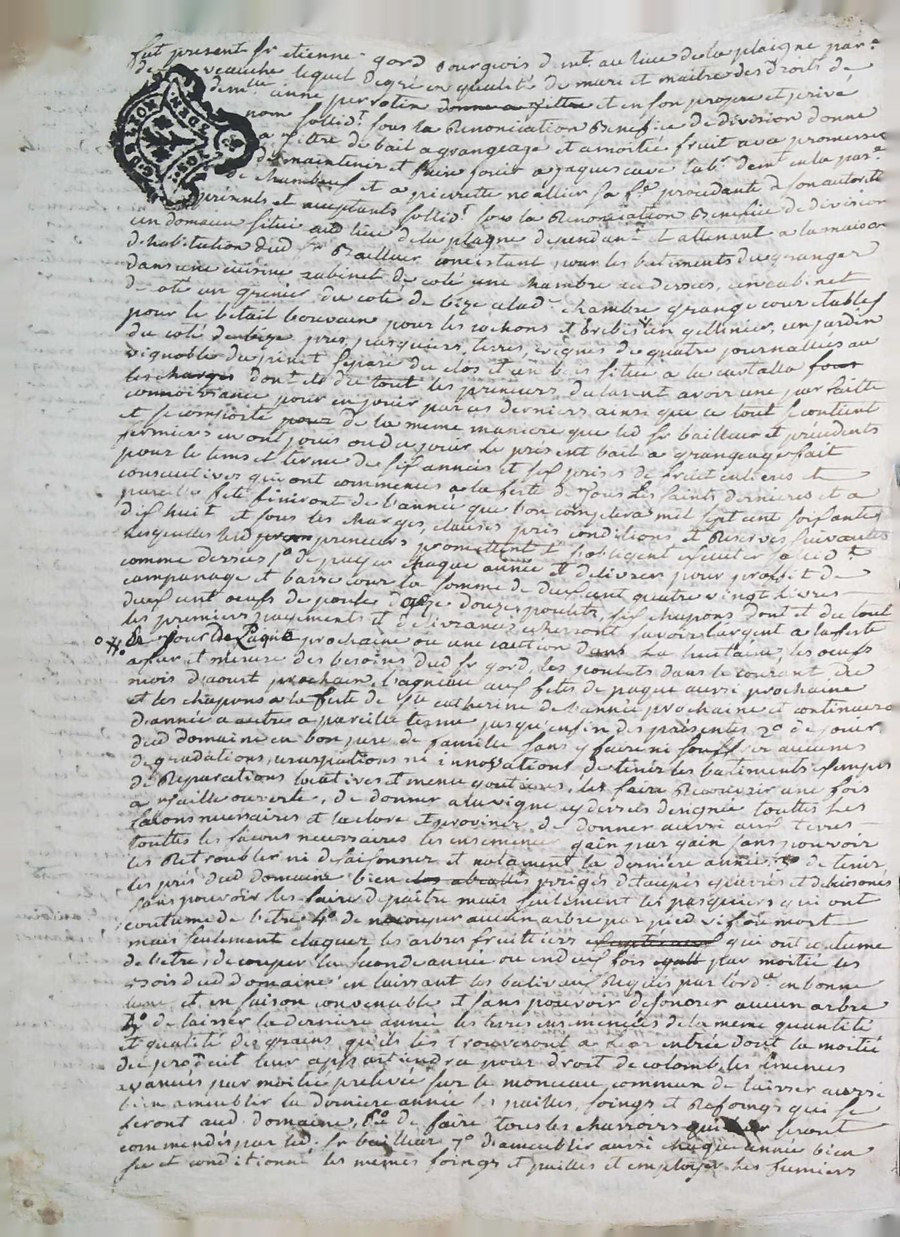 fut present sr etienne gord bourgeois demt au lieu de la plaigne par
de veauche lequel degré en qualité de mary et maitre des droits de
demlle anne pervolin et en son propre et privé
nom sollidt sous la Renonciation Benefice de division donne
a tittre de bail a grangeage et a moitié fruit avec promesse
de maintenir et faire jouir a jaques labr demt en la par
de chambeuf et a pierrette sa fe procedante de son autorité
présents et acceptants sollidt sous la Renonciation Benefice de division
un domaine situé aud lieu de la plagne dependant et attenant a la maison
d'habitation dud sr Bailleur consistant pour les batiments du granger
dans une cuisine cabinet de coté une chambre au dessus, un cabinet
de coté un grenier du coté de bize a lad chambre grange cour etables
pour le betail bouvain pour les cochons et brebis un gellinier, un jardin
du coté de bize, prés, pasquiers, terres, vignes de quatre journallées au
vignoble du separé du clos et un bois situé a la
les charges dont et du tout les preneurs déclarent avoir une parfaitte
connoissance pour en jouir par ces derniers ainsi que ce tout se contient
et se comporte de la meme maniere que led sr bailleur et précédents
fermiers en ont joui ou du jouir le present bail a grangeage fait
pour le tems et terme de six années et six prises de fruits entiers et
consecutives qui ont commencés a la feste de tous les saints derniere et a
pareille fete finiront de l'année que l'on comptera mil sept cent soixante
dix huit et sous les charges, clauses prix conditions, et Reserves suivantes
lesquelles led preneurs promettent et s'obligent executer sollidt
comme dessus 1o de payer chaque année et delivrer pour proffit de
campanage et basse cour la somme de deux cent quatre vingt livres
deux cent oeufs de poule douze poulets, six chapons dont et du tout
les premiers payements et delivrances seront savoir l'argent a la feste
Le jour de Paque prochaine ou une caution dans la huitaine, les oeufs
a fur et mesure des besoins dud sr gord, les poulets dans le courant du
mois d'aoust prochain, l'agneau aux fetes de paque aussi prochaine
et les chapons a la feste de Ste catherine de l'année prochaine et continuera
d'année a autre a pareille terme jusqu'en fin des présentes 2o de jouir
dud domaine en bon pere de famille sans y faire ni souffrir aucunes
degradations, usurpations ni innovations de tenir les batiments exempts
de Reparations locatives et menu goutieres, les faire Recouvrir une fois
a taille ouverte, de donner a la vigne cy dessus designée touttes les
façons necessaires et la clore et provinez, de donner aussi aux terres
touttes les façons necessaires les ensemencer gain par gain sans pouvoir
les Retroubler ni desaisonner et notament la derniere année 3o de tenir
les prés dud domaine bien purgés d'taupes epinés et debuissonés
sans pouvoir les faire depaitre mais seulement les pasquiers qui ont
coutume de l'etre 4o de ne couper aucun arbre par pied vif ou mort
mais seulement elaguer les arbres fruitiers qui ont coutume
de l'etre, de couper la seconde année ou en deux fois par moitié les
bois dud domaine en laissant les baliveaux Reglés par l'ordce en bonne
lune, et en saison convenable et sans pouvoir deshonorer aucun arbre
5o de laisser la derniere année les terres ensemencées de la meme quantité
et qualité des grains, qu'ils les trouveront a leur entrée dont la moitié
du produit leur appartiendra pour droit de colomb, les semences
avancées par moitié prelevée sur le monceau commun de laisser aussi
bien ameubler la derniere année les pailles, foings et Refoings qui se
feront aud domaine, 6o de faire tous les charrois qui leur seront
commendés par led sr bailleur 7o d'ameubler aussi chaque année bien
sec et conditionné les memes foings et pailles et employer les fumiers